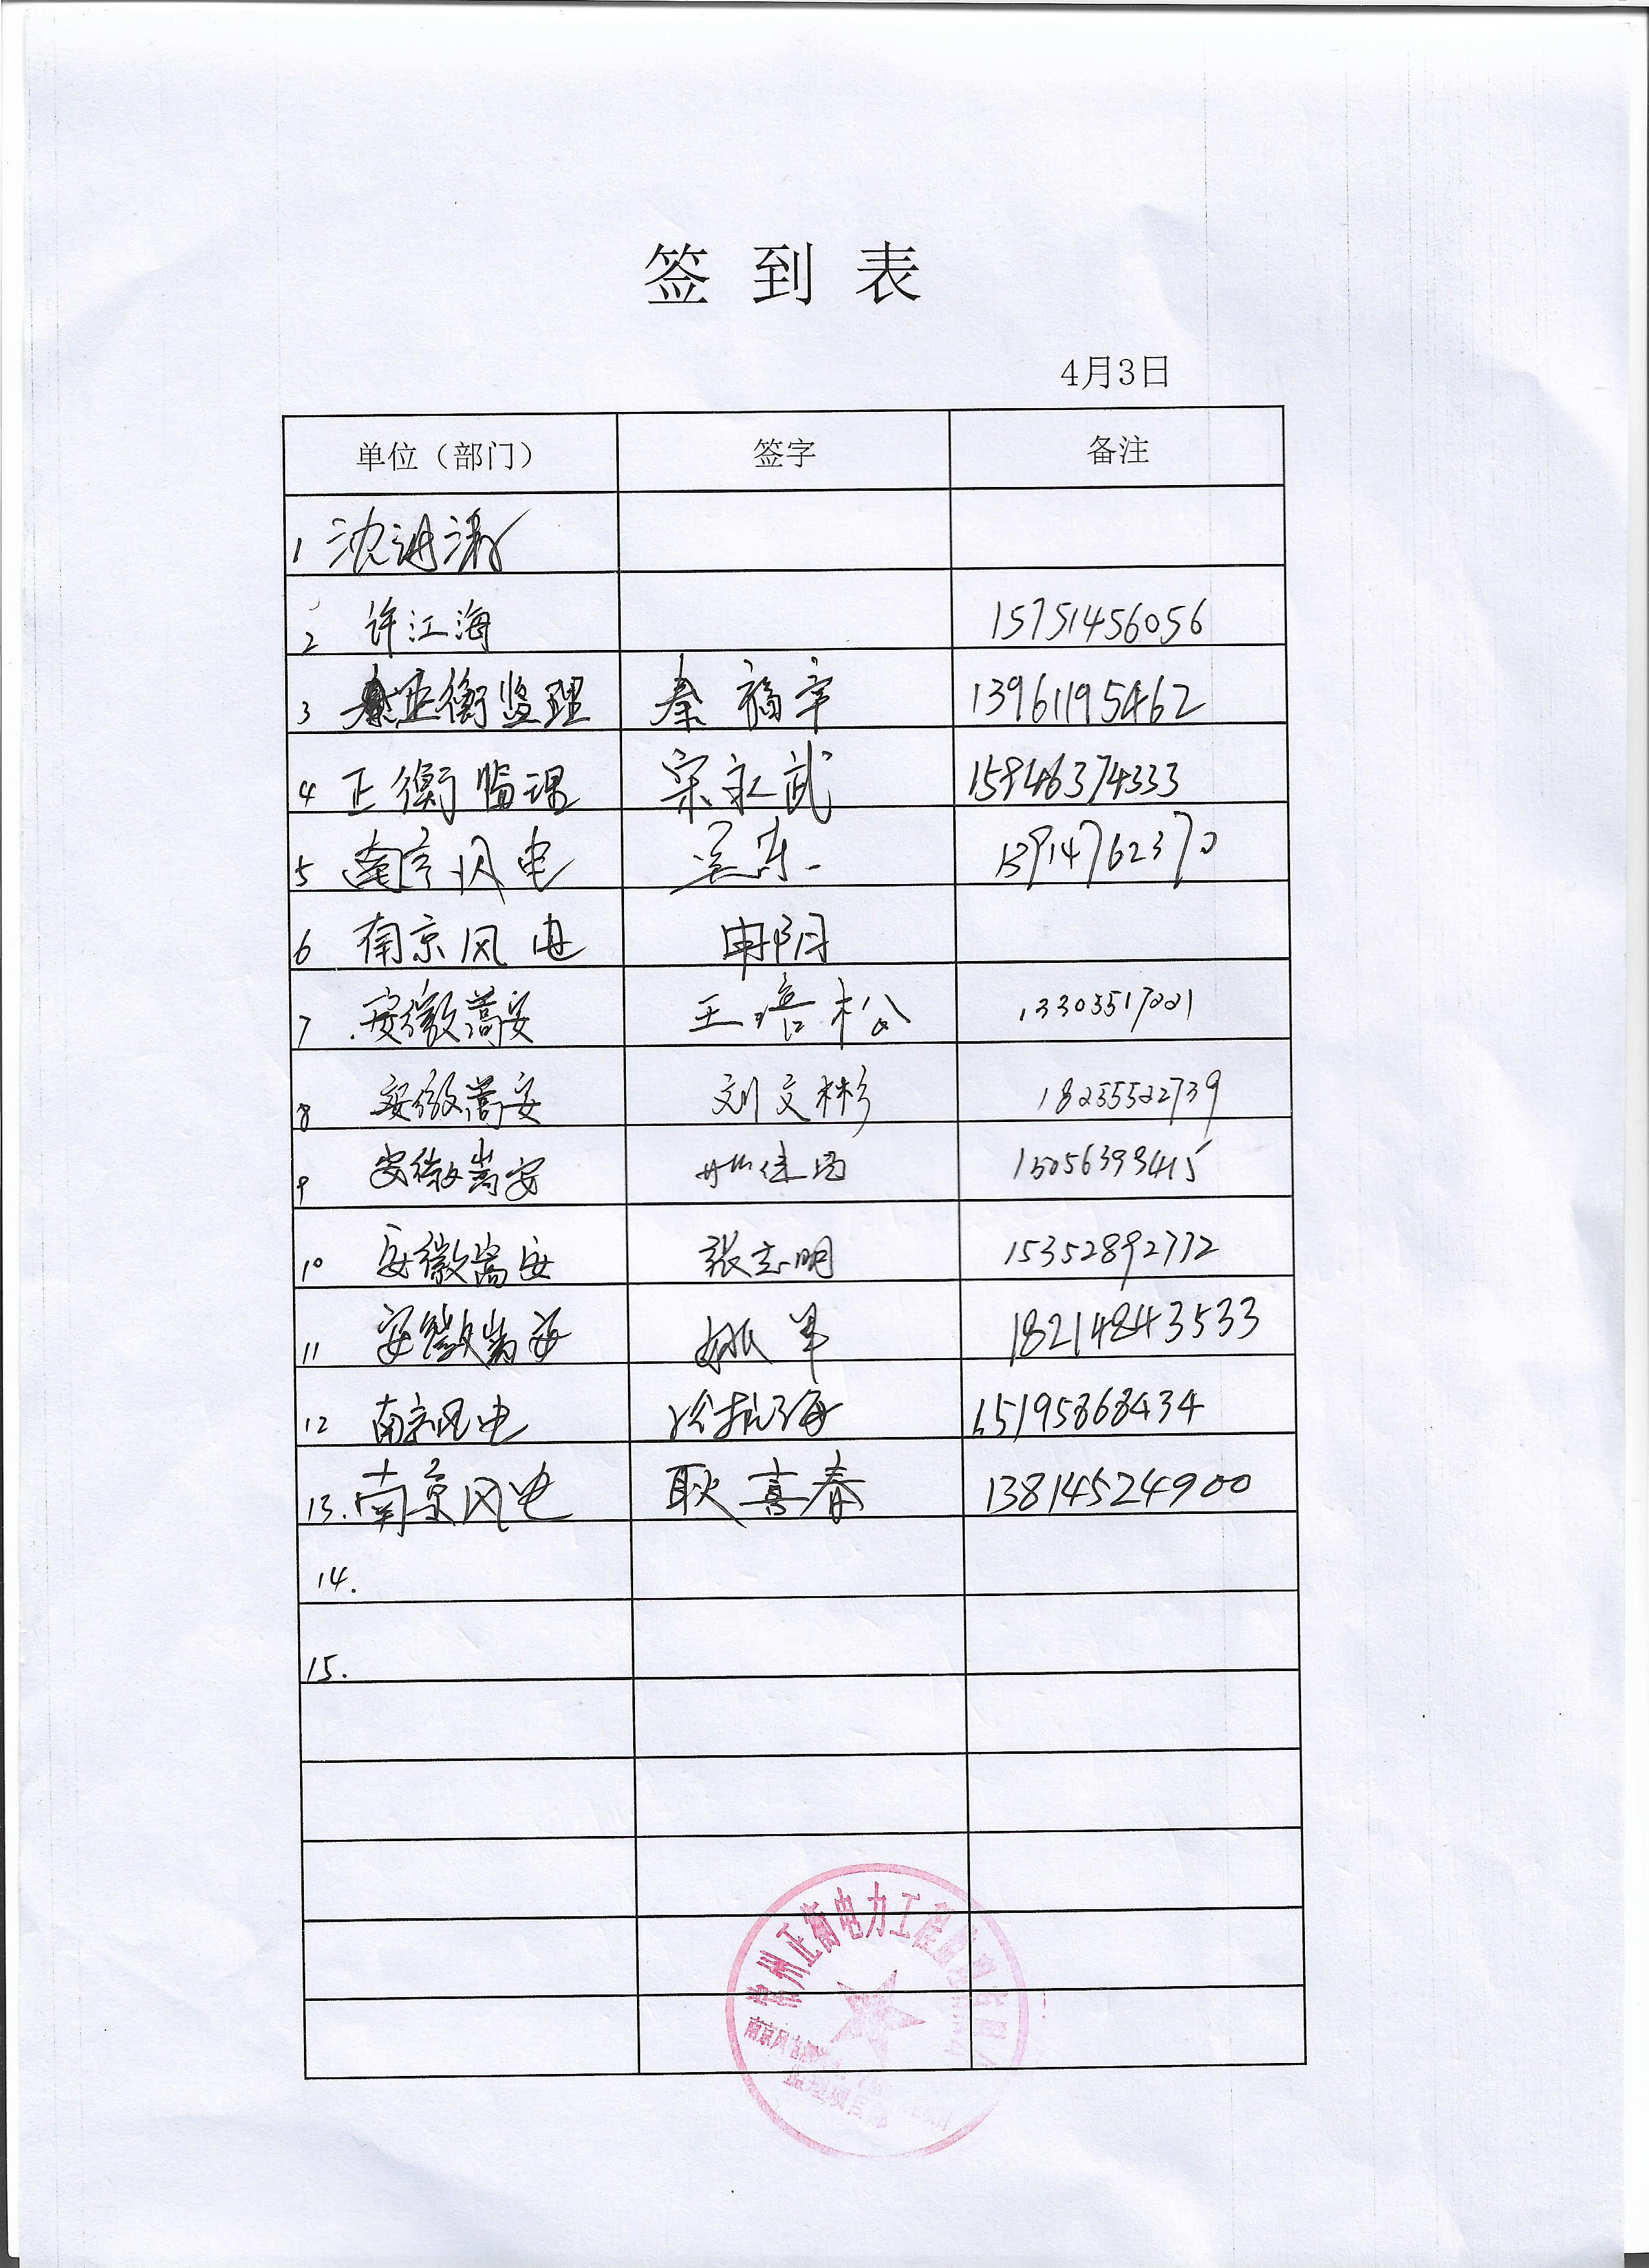 签到表
4月3日
单位（部门） 签字 备注
1 沈进涛
2 许江海 15751456056
3 正衡监理 秦福宇 13961195462
4 正衡监理 宋永武 15946374333
5 南京风电 13914762370
6 南京风电 申阳
7 安徽嵩安 王培松 13305517001
8 安徽嵩安 刘文彬 18255522739
9 安徽嵩安
10 安徽嵩安 张志明 15352892772
11 安徽嵩安 18214843533
12 南京风电 15195868434
13. 南京风电 耿喜春 13814524900
14.
15.
常州正衡电力工程监理有限公司
监理项目部